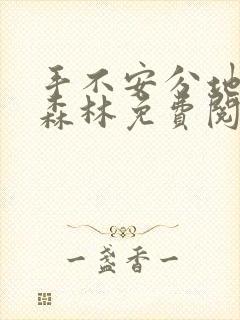 手不安分地
森林免费阅
一盏香一